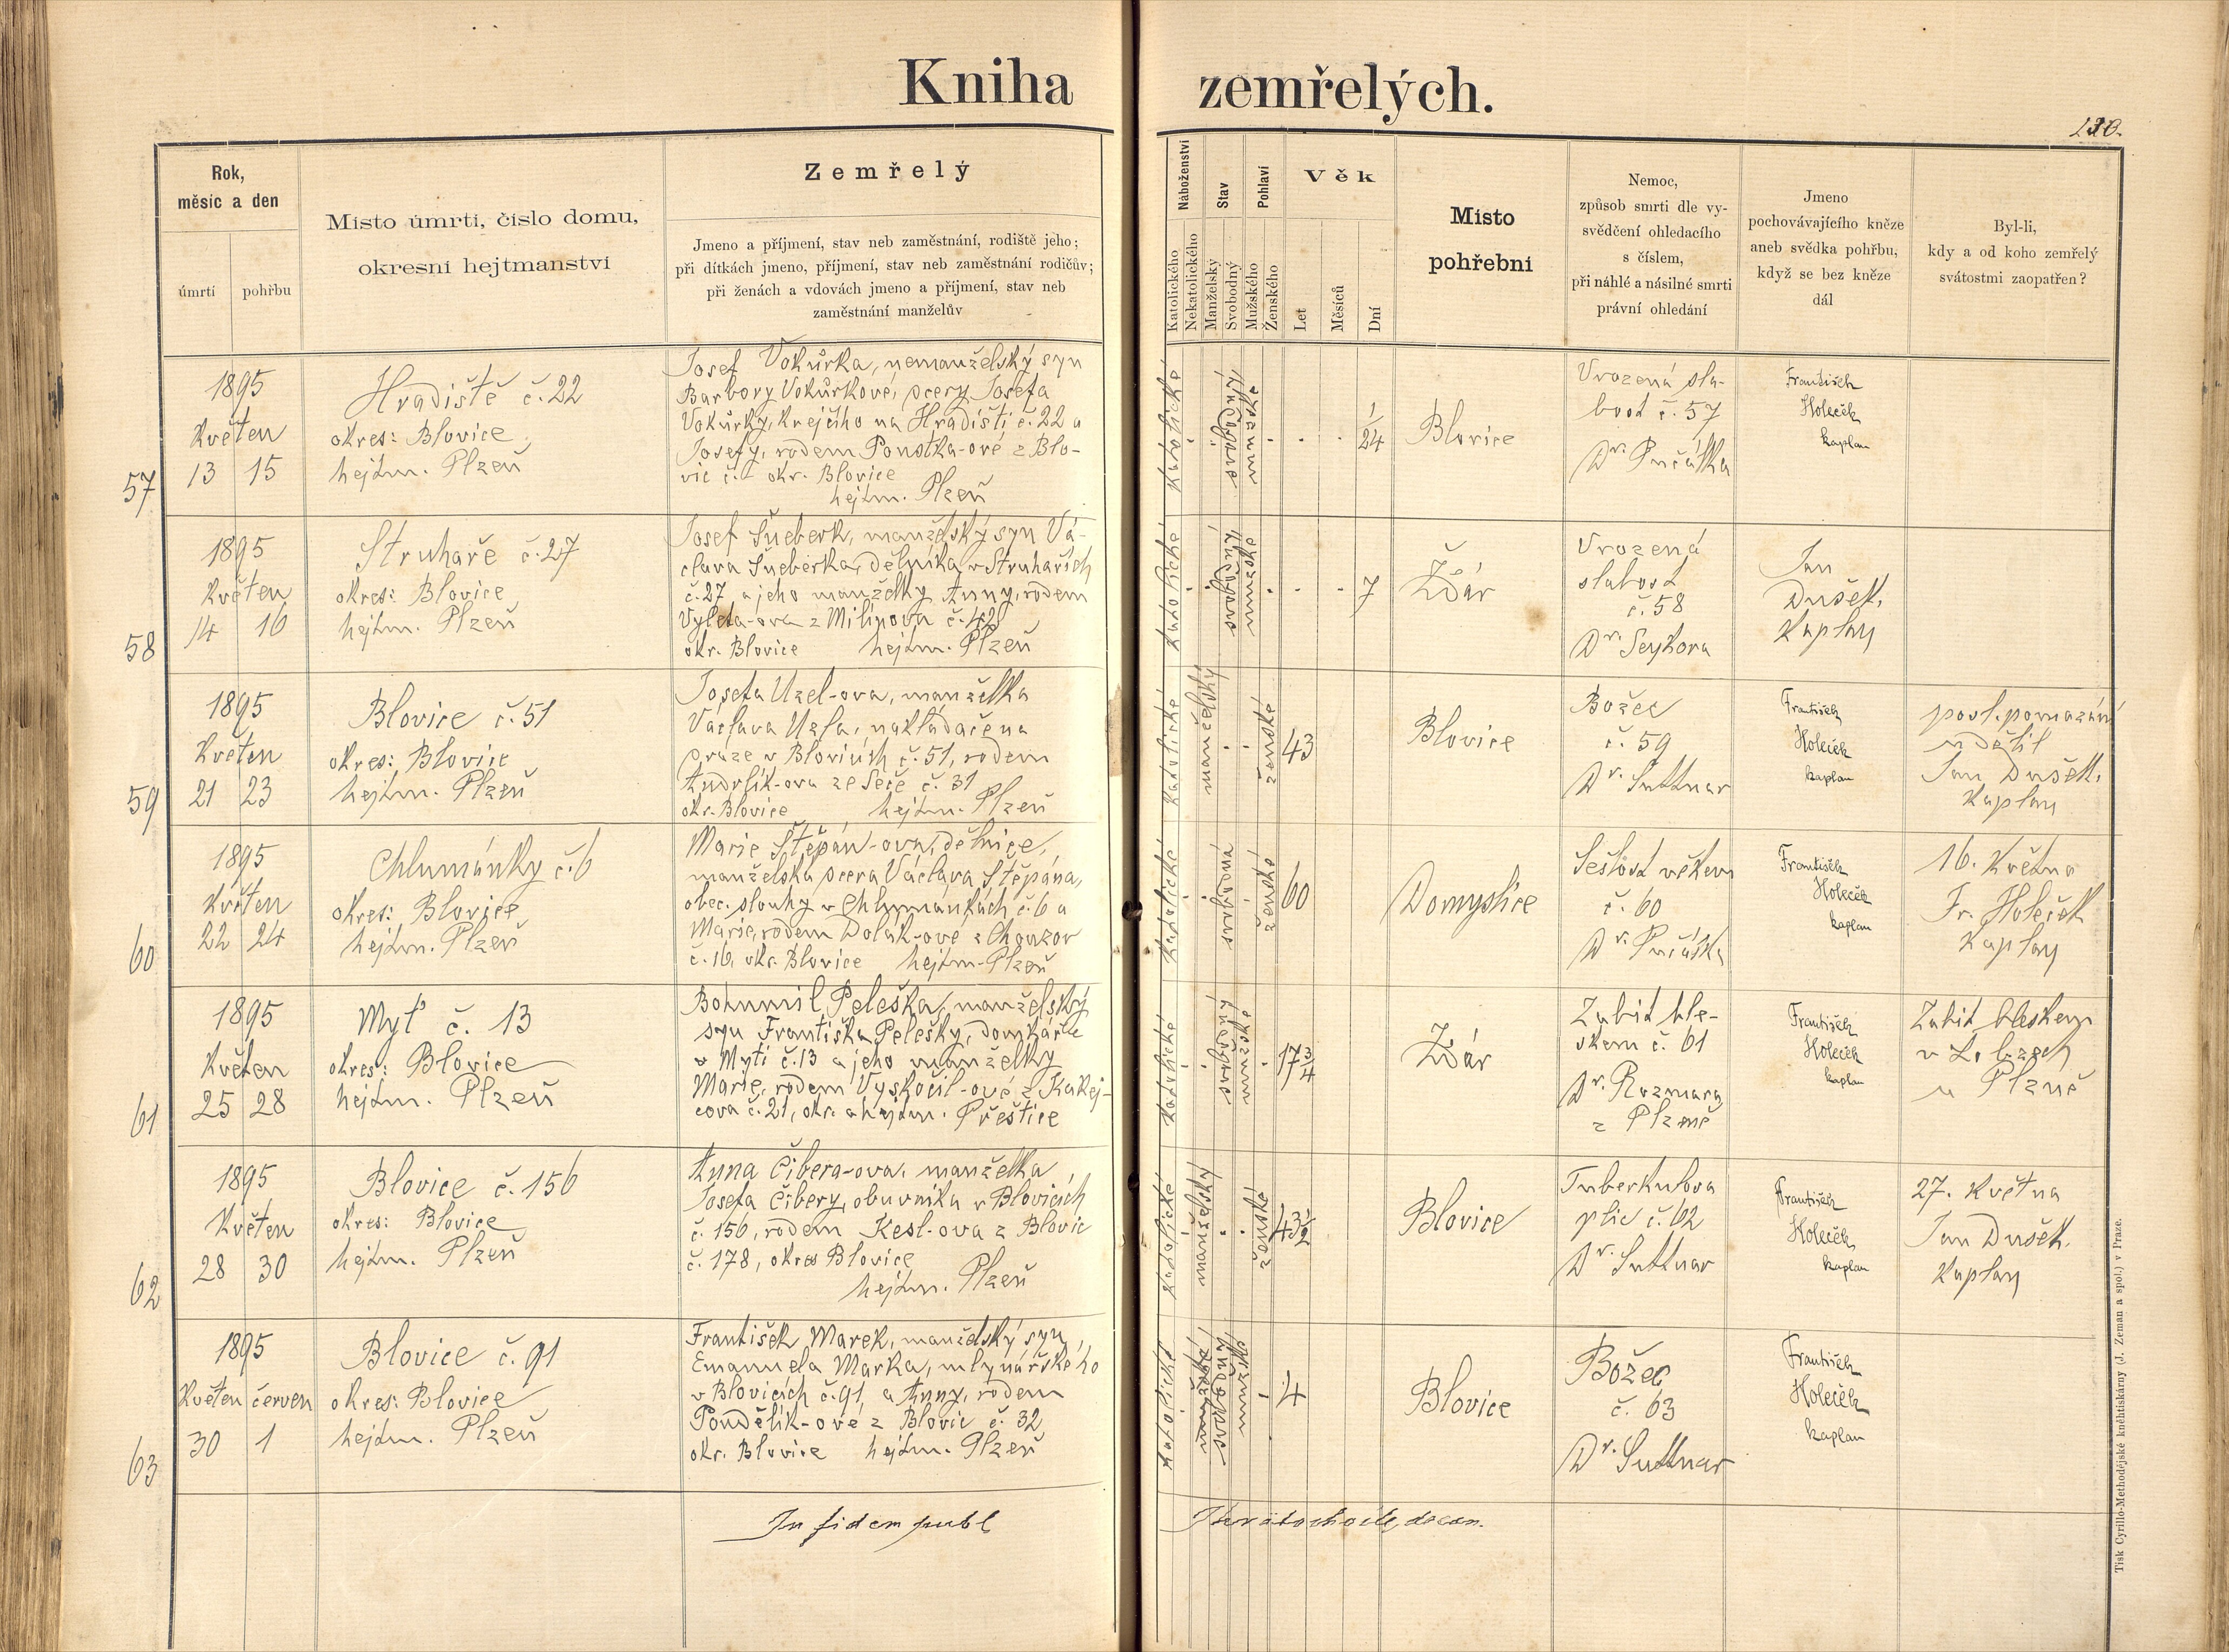 Kniha zemřelých.
Rok,
měsíc a den
úmrtí
pohřbu
Místo úmrtí, číslo domu,
okresní hejtmanství
Zemřelý
Jmeno a příjmení, stav neb zaměstnání, rodiště jeho;
při dítkách jmeno, příjmení, stav neb zaměstnání rodičův;
při ženách a vdovách jmeno a příjmení, stav neb
zaměstnání manželův
Náboženství
Katolického
Nekatolického
Stav
Manželský
Svobodný
Pohlaví
Mužského
Ženského
Věk
Let
Měsíců
Dní
Místo
pohřební
Nemoc,
způsob smrti dle vy-
svědčení ohledacího
s číslem,
při náhlé a násilné smrti
právní ohledání
Jmeno
pochovávajícího kněze
aneb svědka pohřbu,
když se bez kněze
dál
Byl-li,
kdy a od koho zemřelý
svátostmi zaopatřen?
57
1895
Květen
13 15
Hradiště č. 22
okres: Blovice
hejtm. Plzeň
Josef Vokůrka, nemanželský syn
Barbory Vokůrkové, dcery Josefa
Vokůrky, krejčího na Hradišti č. 22 a
Josefy, rodem Poustka-ové z Blo-
vic č. okr. Blovice
hejtm. Plzeň
katolické
svobodný
mužské
1/24
Blovice
Vrozená sla-
bost č. 57
Dr.
František
Holeček
kaplan
58
1895
Květen
14 16
Struhaře č. 27
okres: Blovice
hejtm. Plzeň
Josef Šneberk, manželský syn Vá-
clava Šneberka, dělníka v Struhařích
č. 27, a jeho manželky Anny, rodem
Vyleta-ova z Milínova č. 42
okr. Blovice hejtm. Plzeň
katolické
svobodný
mužské
7
Ždár
Vrozená
slabost
č. 58
Dr. Seykora
Jan
Dušek,
kaplan
59
1895
Květen
21 23
Blovice č. 51
okres: Blovice
hejtm. Plzeň
Josefa Uzel-ova, manželka
Václava Uzla, nakladače na
dráze v Blovicích č. 51, rodem
Andrlík-ova ze Seče č. 31
okr. Blovice hejtm. Plzeň
katolické
manželský
ženské
43
Blovice
Božec
č. 59
Dr. Suttnar
František
Holeček
kaplan
posl. pomazání
udělil
Jan Dušek,
kaplan
60
1895
Květen
22 24
Chlumánky č. 6
okres: Blovice
hejtm. Plzeň
Marie Štěpán-ova, dělnice,
manželská dcera Václava Štěpána,
obec. slouhy v Chlumánkách č. 6 a
Marie, rodem Dolák-ové z Chouzov
č. 16, okr. Blovice hejtm. Plzeň
katolické
svobodná
ženské
60
Domyslice
Sešlost věkem
č. 60
Dr.
František
Holeček
kaplan
16. Května
Fr. Holeček
kaplan
61
1895
Květen
25 28
Myť č. 13
okres: Blovice
hejtm. Plzeň
Bohumil Peleška, manželský
syn Františka Pelešky, domkáře
v Mýti č. 13 a jeho manželky
Marie, rodem Vyskočil-ové z Kakej-
cova č. 21, okr. a hejtm. Přeštice
katolické
svobodný
mužské
17 3/4
Ždár
Zabit ble-
skem č. 61
Dr. Rozmara
z Plzně
František
Holeček
kaplan
Zabit bleskem
v Lobzech
u Plzně
62
1895
Květen
28 30
Blovice č. 156
okres: Blovice
hejtm. Plzeň
Anna Čibera-ova, manželka
Josefa Čibery, obuvníka v Blovicích
č. 156, rodem Kesl-ova z Blovic
č. 178, okres Blovice
hejtm. Plzeň
katolické
manželský
ženské
43 1/2
Blovice
Tuberkulosa
plic č. 62
Dr. Suttnar
František
Holeček
kaplan
27. Května
Jan Dušek,
kaplan
63
1895
Květen červen
30 1
Blovice č. 91
okres: Blovice
hejtm. Plzeň
František Marek, manželský syn
Emanuela Marka, mlynářského
v Blovicích č. 91, a Anny, rodem
Pondělík-ové z Blovic č. 32
okr. Blovice hejtm. Plzeň
katolické
svobodný
mužské
4
Blovice
Božec
č. 63
Dr. Suttnar
František
Holeček
kaplan
In fidem publ
decan.
Tisk Cyrillo-Methodějské knihtiskárny (J. Zeman a spol.) v Praze.